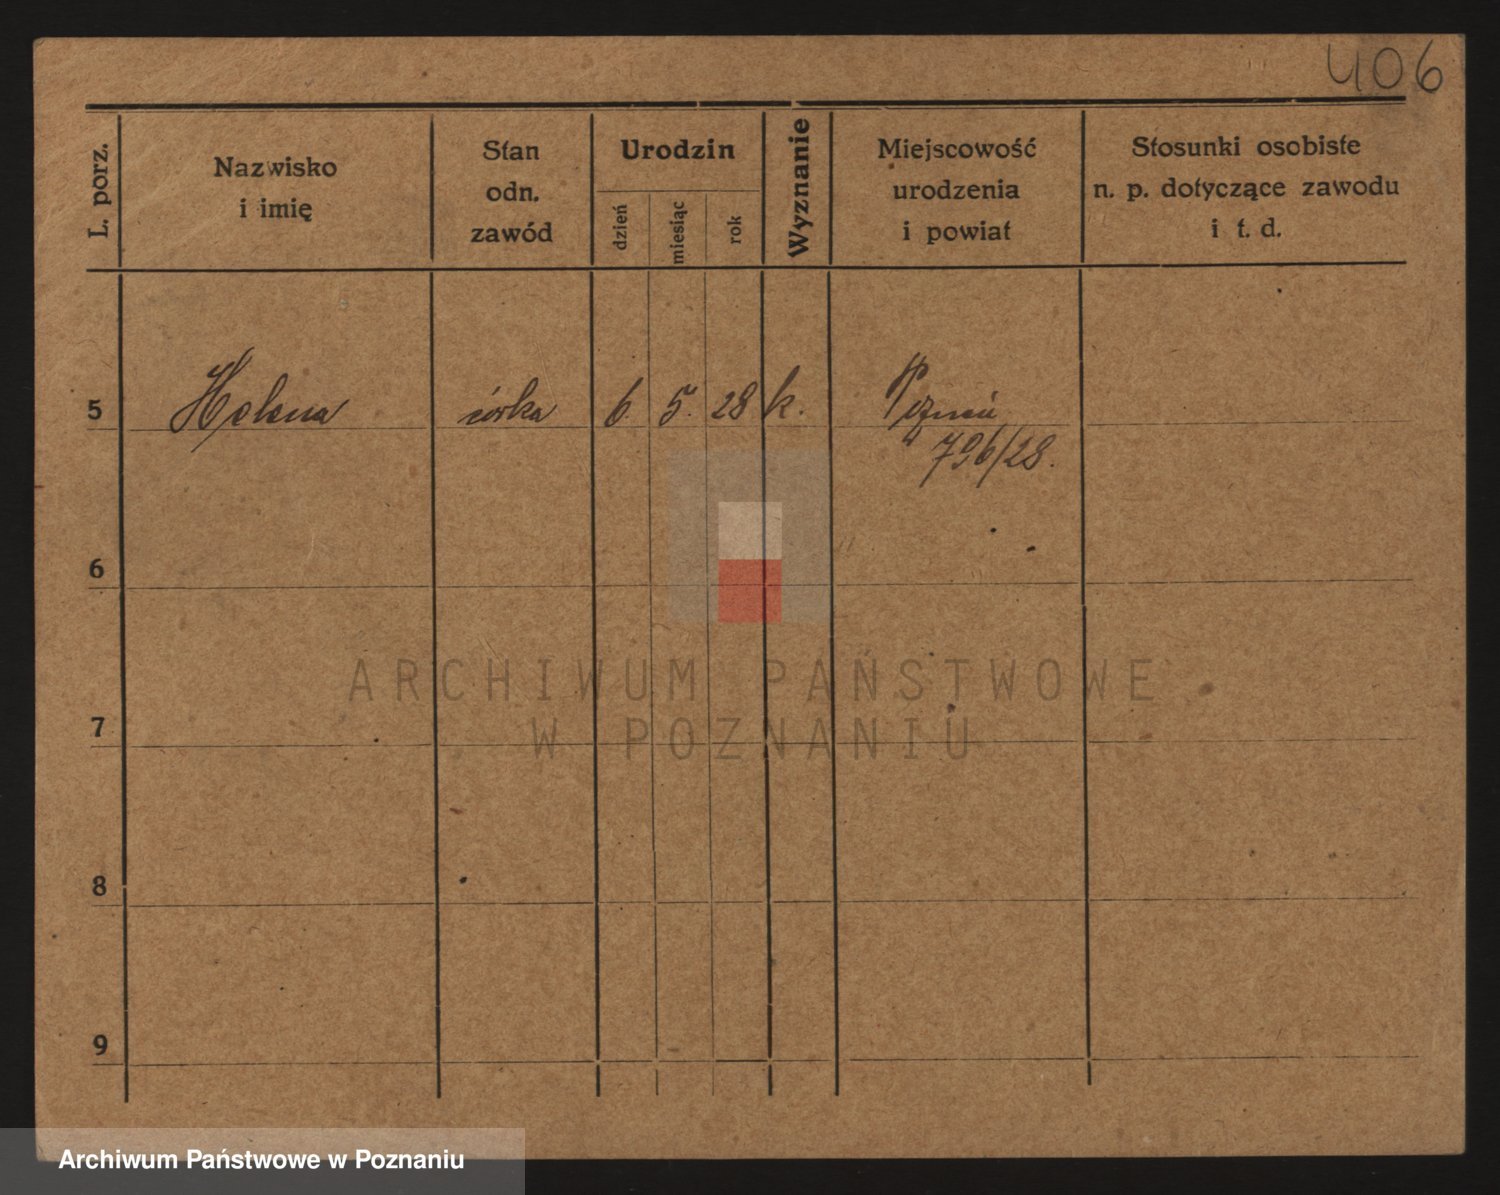 406
L. porz.
Nazwisko
i imię
Stan
odn.
zawód
Urodzin
dzień
miesiąc
rok
Wyznanie
Miejscowość
urodzenia
i powiat
Stosunki osobiste
n. p. dotyczące zawodu
i t. d.
5 Helena córka 6. 5. 28 k. Poznań
796/28.
6
7
8
9
ARCHIWUM PAŃSTWOWE
W POZNANIU
Archiwum Państwowe w Poznaniu